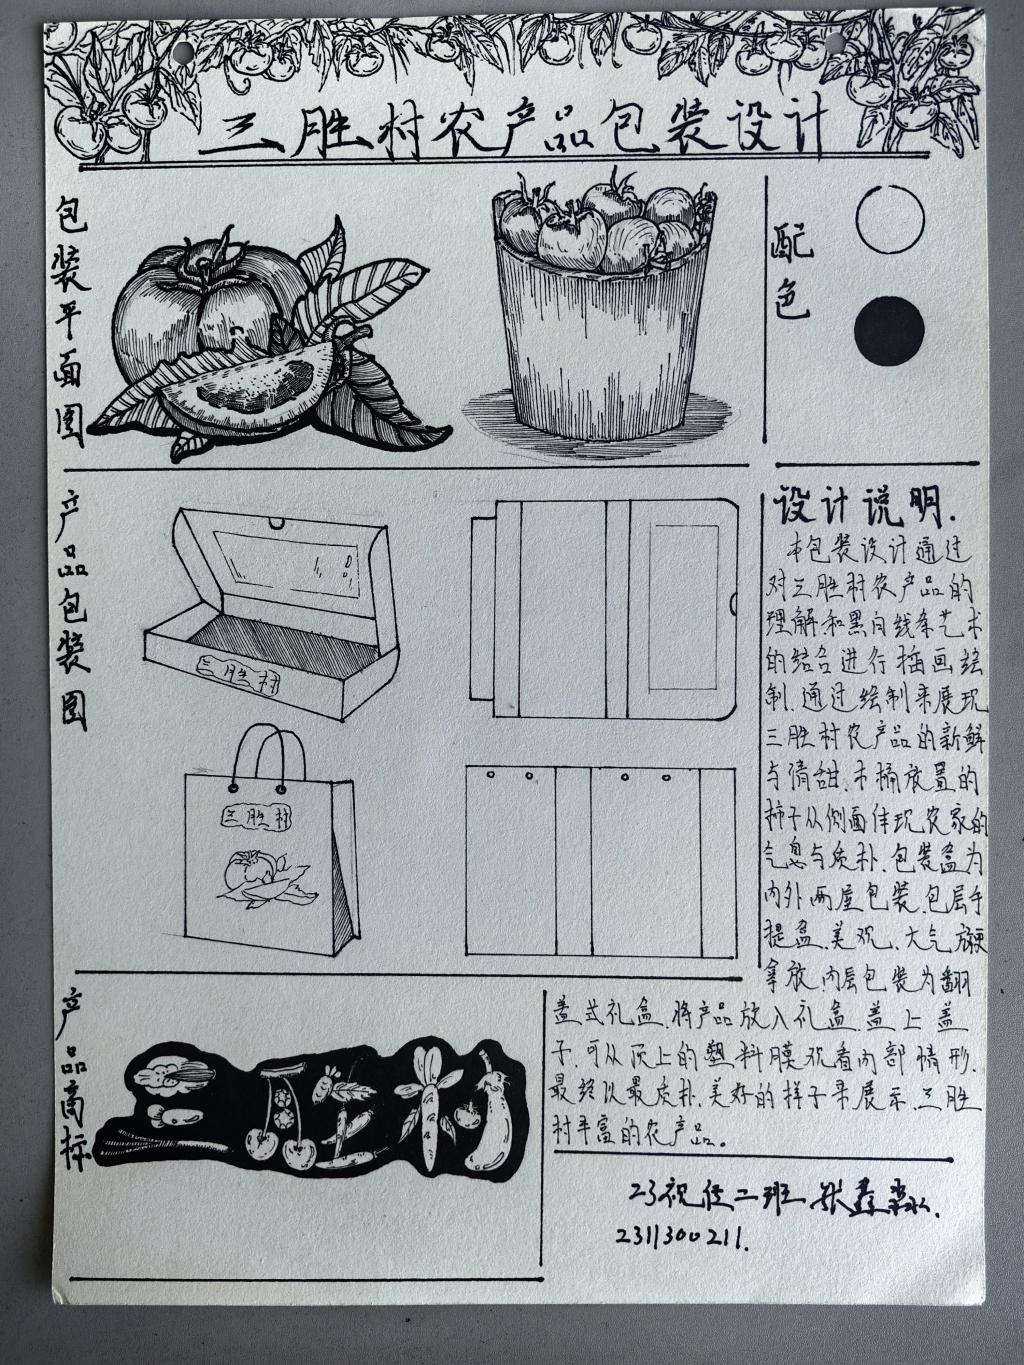 三胜村农产品包装设计
包装平面图
配色
产品包装图
三胜村
三胜村
设计说明.
本包装设计通过
对三胜村农产品的
理解和黑白线条艺术
的结合进行插画绘
制.通过绘制来展现
三胜村农产品的新鲜
与清甜.木桶放置的
柿子从侧面体现农家的
气息与质朴.包装盒为
内外两层包装.包层手
提盒.美观.大气.方便
拿放.内层包装为翻
盖式礼盒.将产品放入礼盒.盖上盖
子.可从顶上的塑料膜观看内部情形.
最终以最质朴.美好的样子来展示.三胜
村丰富的农产品。
产品商标
三胜村
23视传二班
231130021 1.